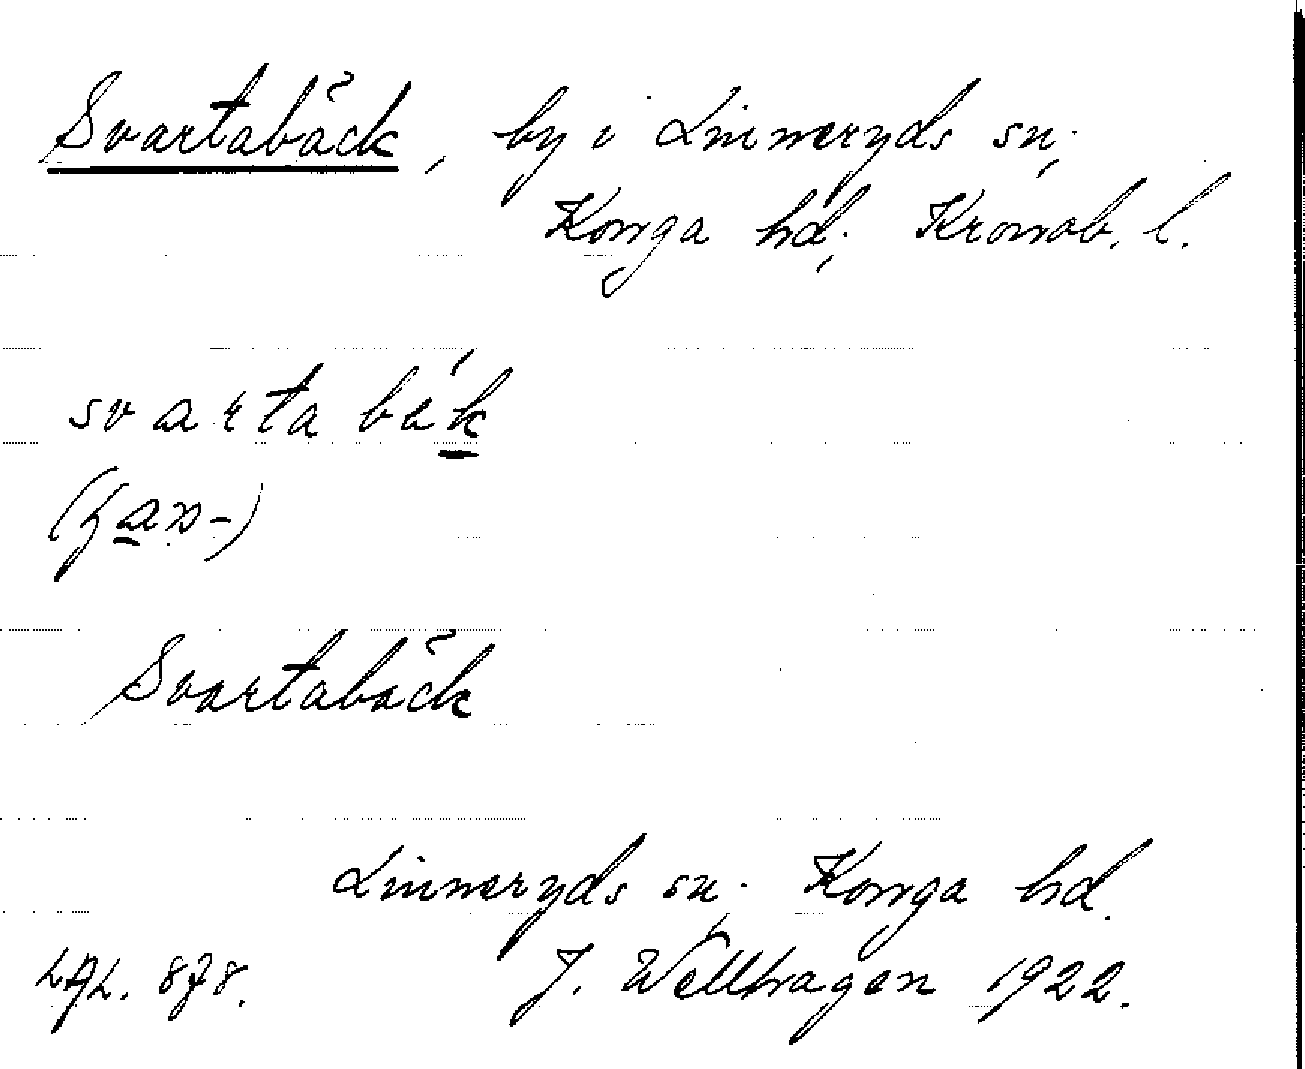 Svartabäck, by i Linneryds sn,
Konga hd, Kronob. l.
svarta bäk
Svartabäck
Linneryds sn, Konga hd.
J. Wellhagen 1922.